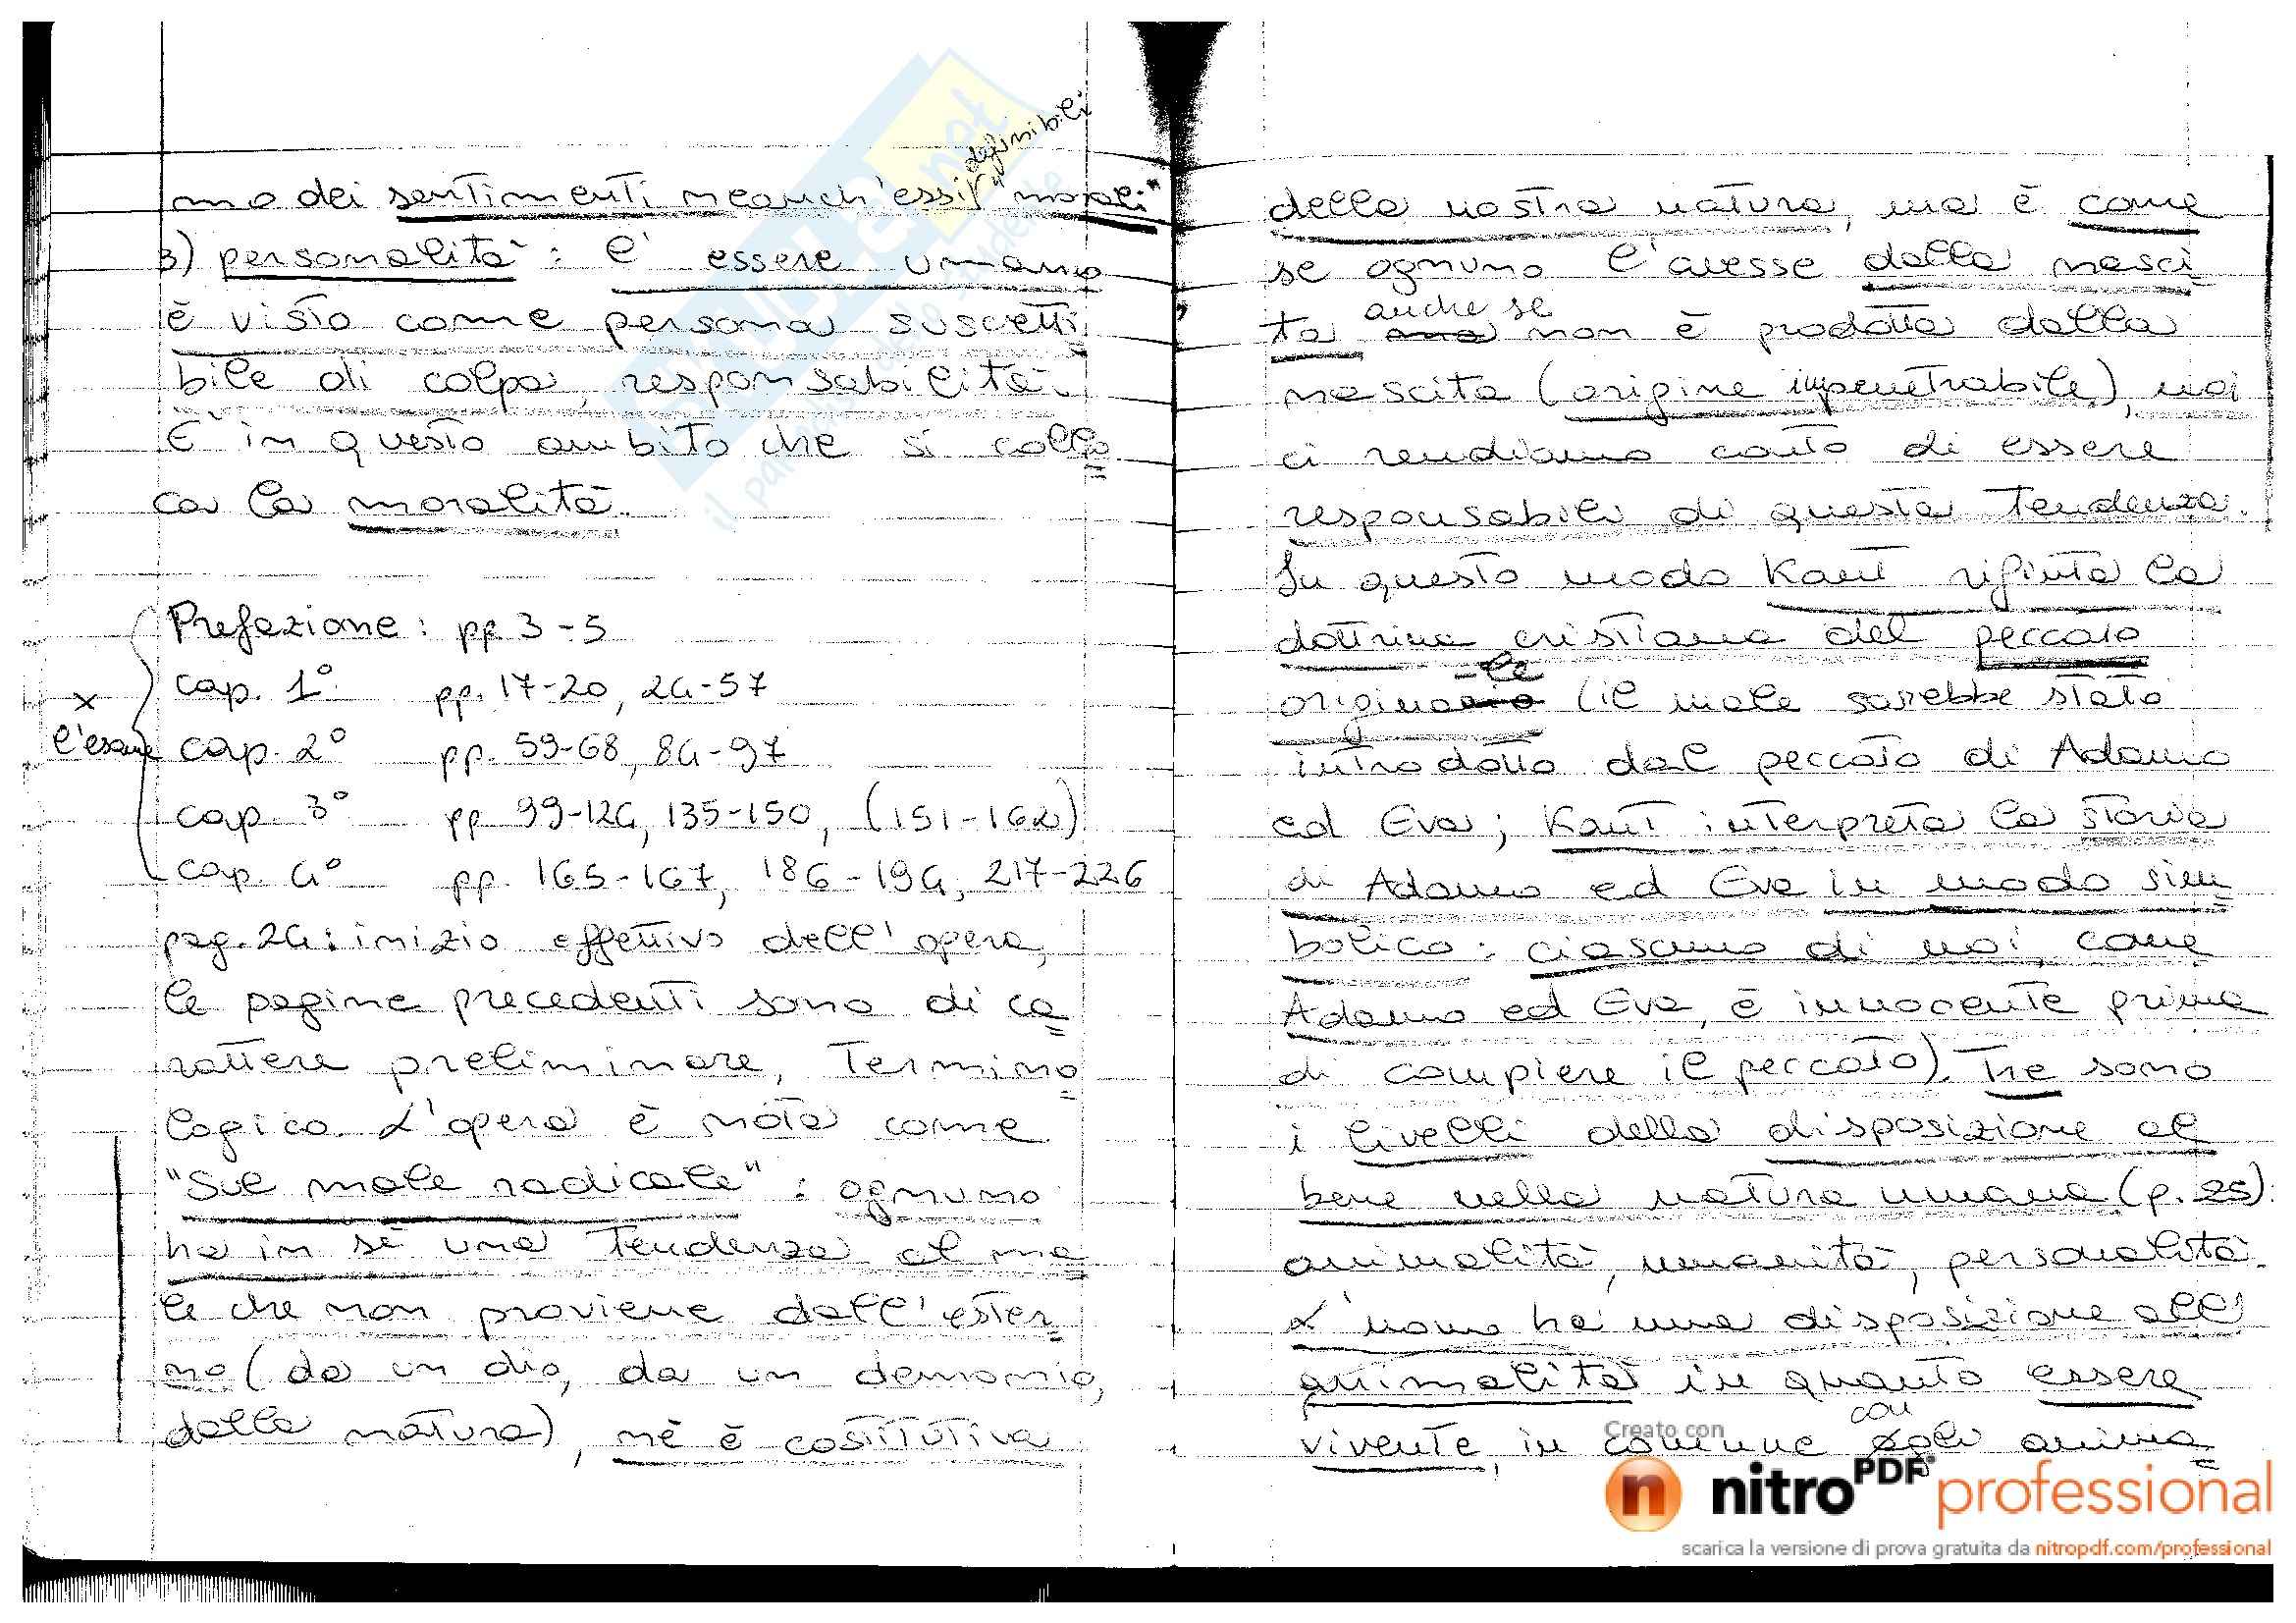 definibili
mo dei sentimenti neanch'essi "morali"
3) personalità: l'essere umano
è visto come persona suscetti
bile di colpa, responsabilità.
È in questo ambito che si collo
ca la moralità.
Prefazione: pp. 3-5
cap. 1° pp. 17-20, 24-57
x
l'esame
cap. 2° pp. 59-68, 84-97
cap. 3° pp. 99-124, 135-150, (151-162)
cap. 4° pp. 165-167, 186-194, 217-226
pag. 24: inizio effettivo dell'opera,
le pagine precedenti sono di ca
rattere preliminare, termino
logico. L'opera è nota come
"Sul male radicale": ognuno
ha in sé una tendenza al ma
le che non proviene dall'ester
no (da un dio, da un demonio,
dalla natura), né è costitutiva
della nostra natura, ma è come
se ognuno l'avesse dalla nasci
anche se
ta ma non è prodotta dalla
nascita (origine impenetrabile), noi
ci rendiamo conto di essere
responsabili di questa tendenza.
In questo modo Kant rifiuta la
dottrina cristiana del peccato
-le
originario (il male sarebbe stato
introdotto dal peccato di Adamo
ed Eva; Kant interpreta la storia
di Adamo ed Eva in modo sim
bolico: ciascuno di noi, come
Adamo ed Eva, è innocente prima
di compiere il peccato). Tre sono
i livelli della disposizione al
bene nella natura umana (p. 25):
animalità, umanità, personalità.
L'uomo ha una disposizione all'
animalità in quanto essere
con
vivente, in comune agli anima
Creato con
nitroPDF professional
scarica la versione di prova gratuita da nitropdf.com/professional